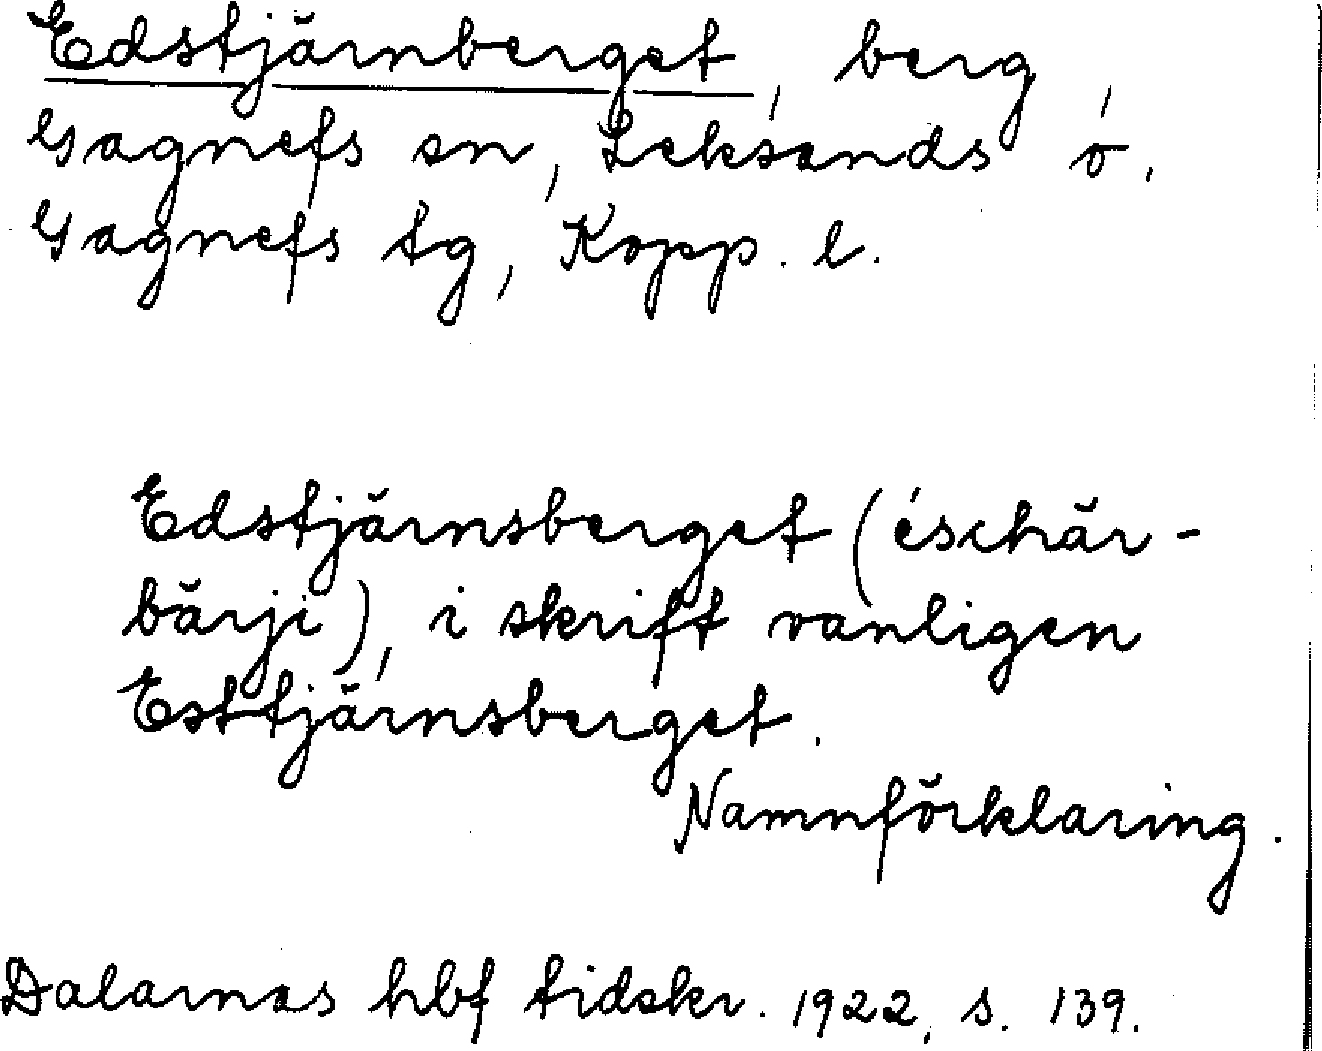 Edstjärnberget, berg,
Gagnefs sn, Leksands o.
Gagnefs tg, Kopp. l.
Edstjärnsberget (éschär-
bärji), i skrift vanligen
Esttjärnsberget.
Namnförklaring.
Dalarnas hbf tidskr. 1922, s. 139.